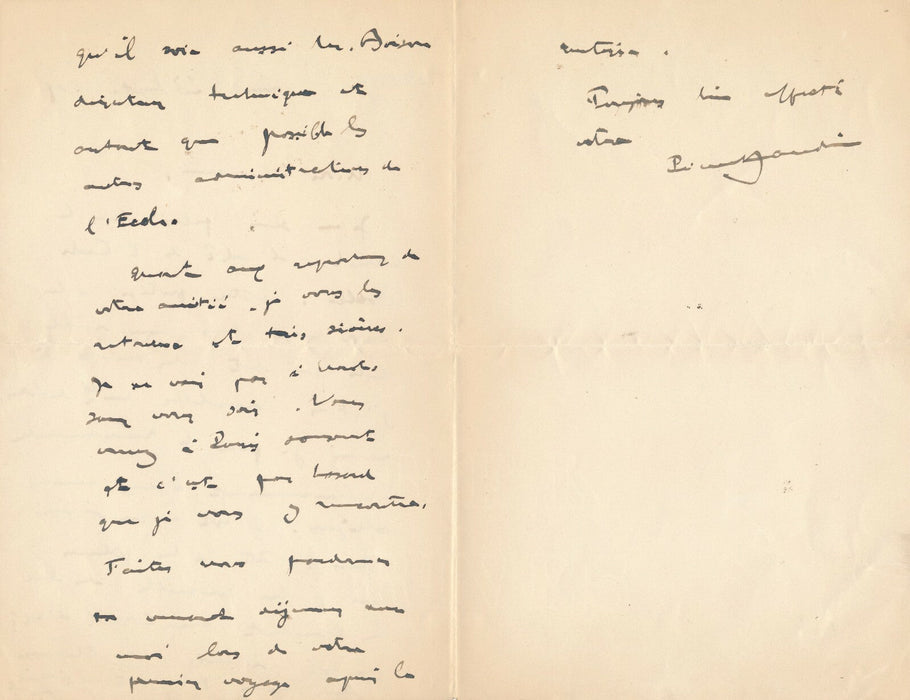 qu'il soit aussi les. Boisson
directeur technique et
autant que possible les
autres administratives de
l'Ecole.
quant aux reproches de
votre amitié, je vous les
retourne et très sincères.
Je ne vais pas à
sans vous voir. Vous
venez à Paris souvent
et c'est par hasard
que je vous y rencontre.
Faites vous pardonner
en venant déjeuner avec
moi lors de votre
premier voyage après la
rentrée.
Toujours bien affecti
votre